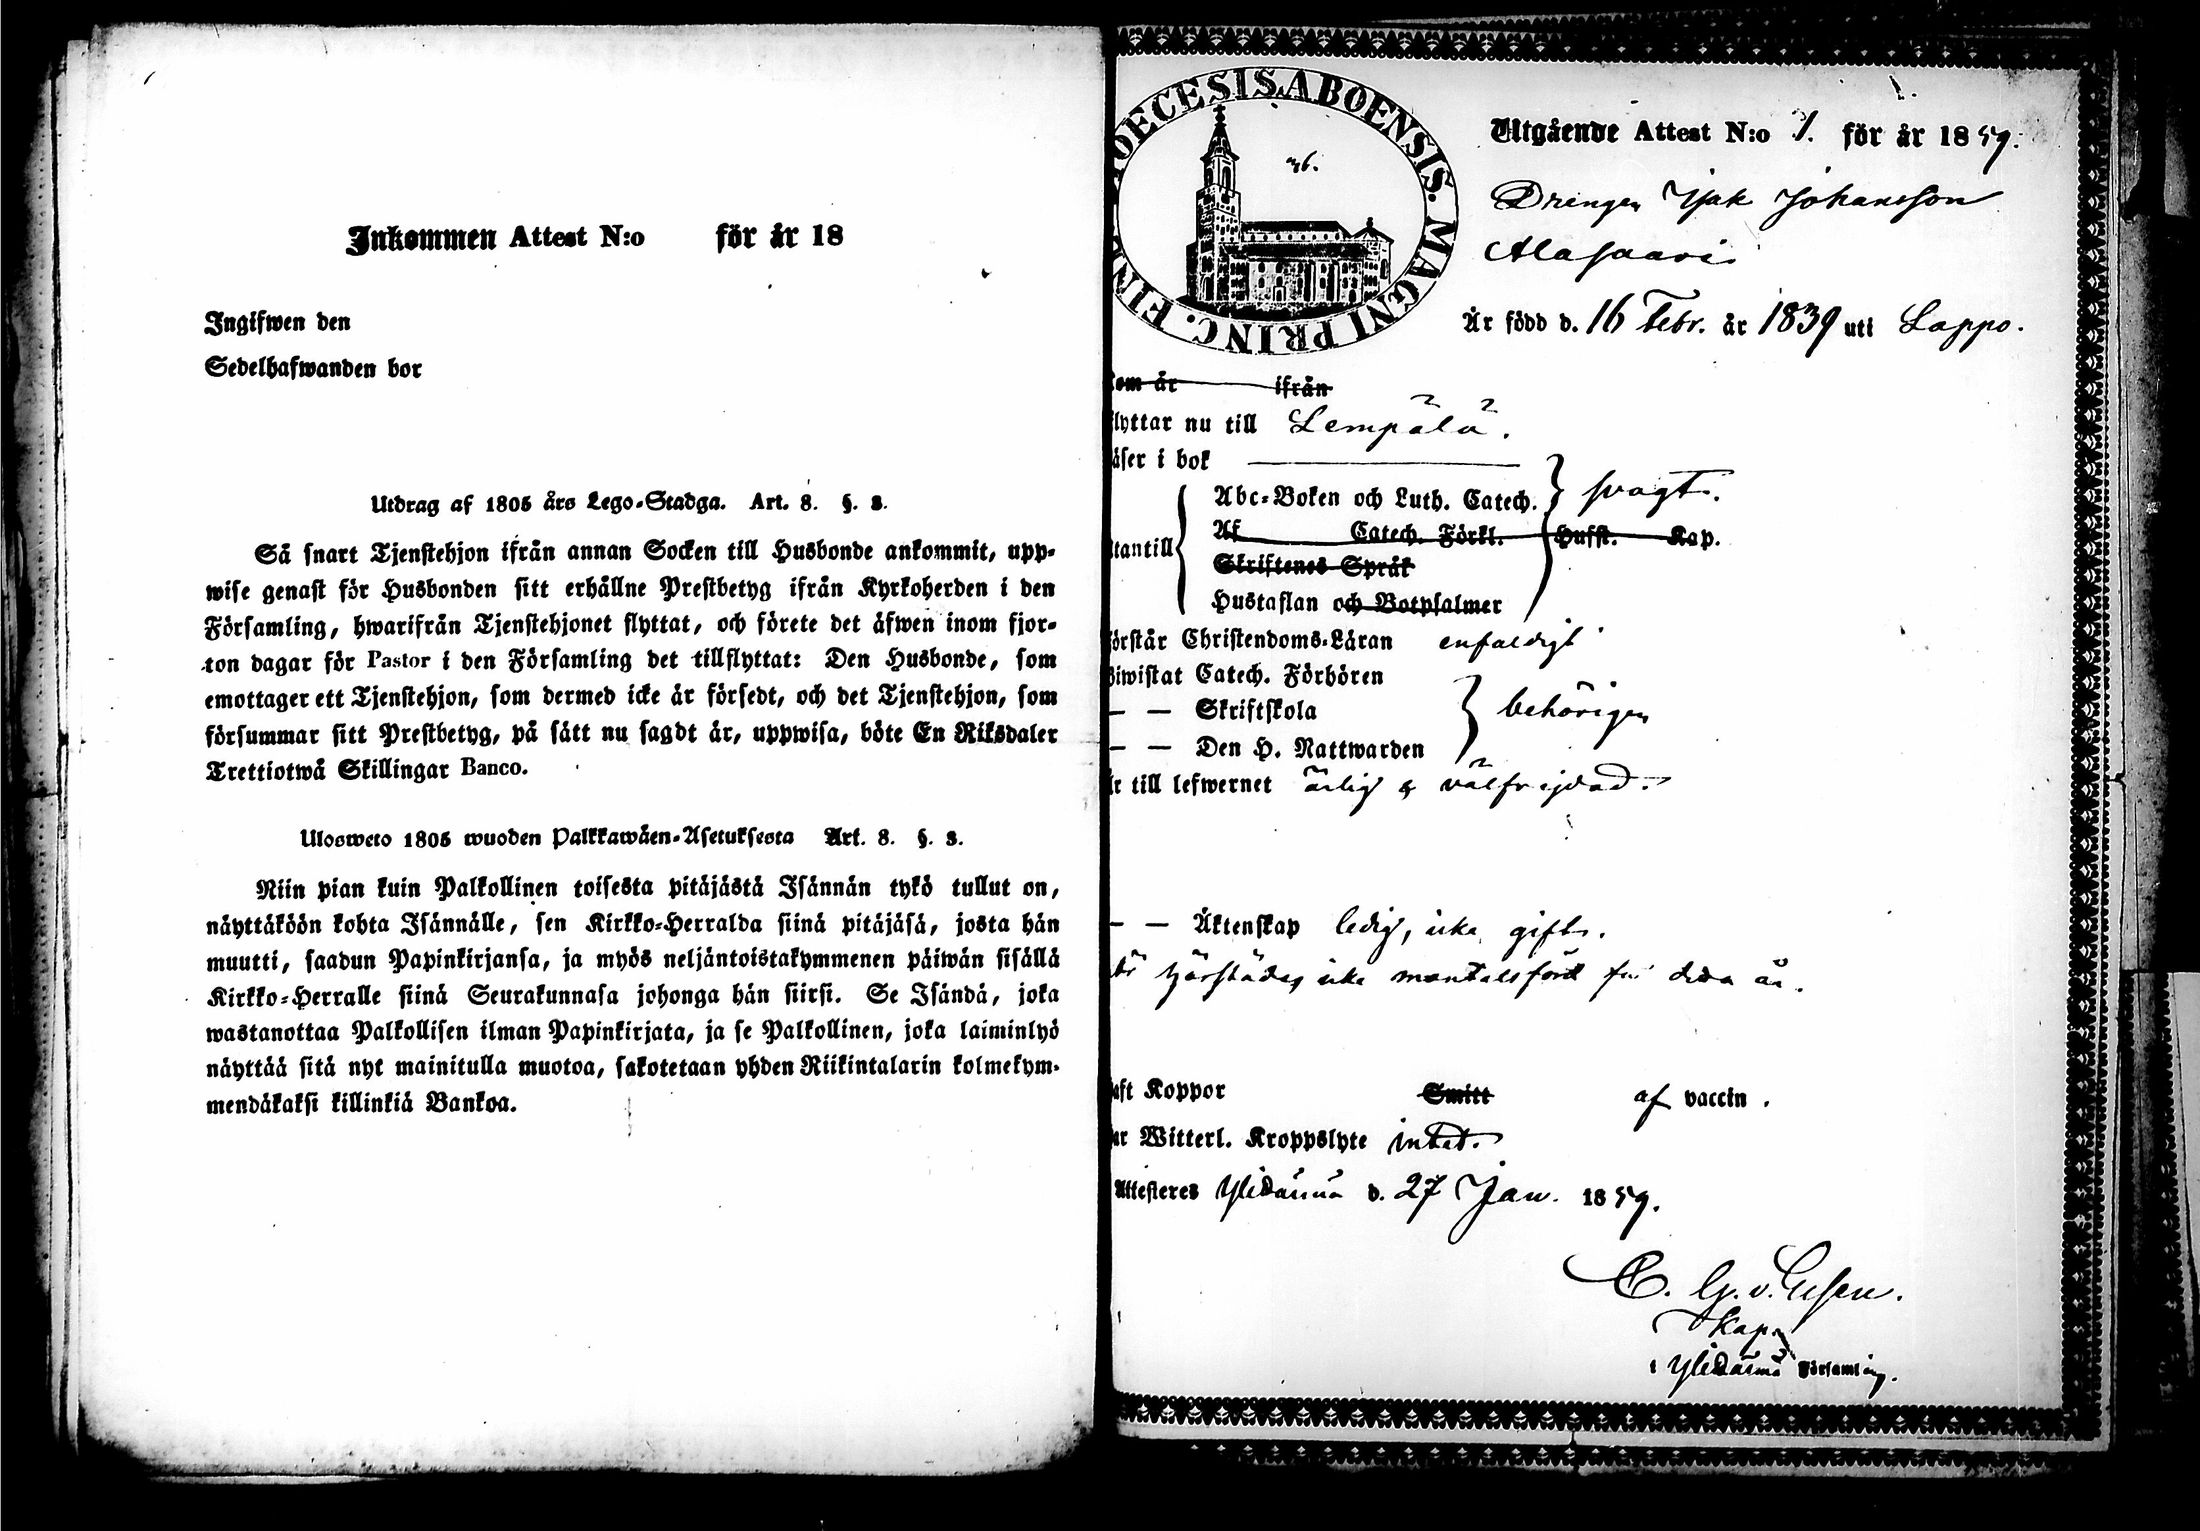 Inkommen Attest N:o för år 18
Ingifwen den
Sedelhafwanden bor
Utdrag af 1805 års Lego-Stadga. Art. 8. §. 3.
Så snart Tjenstehjon ifrån annan Socken till Husbonde ankommit, upp-
wise genast för Husbonden sitt erhållne Prestbetyg ifrån Kyrkoherden i den
Församling, hwarifrån Tjenstehjonet flyttat, och förete det äfwen inom fjor-
ton dagar för Pastor i den Församling det tillflyttat: Den Husbonde, som
emottager ett Tjenstehjon, som dermed icke är försedt, och det Tjenstehjon, som
försummar sitt Prestbetyg, på sätt nu sagdt är, uppwisa, böte En Riksdaler
Trettiotwå Skillingar Banco.
Ulosweto 1805 wuoden Palkkawäen-Asetuksesta Art. 8. §. 3.
Niin pian kuin Palkollinen toisesta pitäjästä Isännän tykö tullut on,
näyttäköön kohta Isännälle, sen Kirkko-Herralda siinä pitäjäsä, josta hän
muutti, saadun Papinkirjansa, ja myös neljäntoistakymmenen päiwän sisällä
Kirkko-Herralle siinä Seurakunnasa johonga hän siirsi. Se Isändä, joka
wastanottaa Palkollisen ilman Papinkirjata, ja se Palkollinen, joka laiminlyö
näyttää sitä nyt mainitulla muotoa, sakotetaan yhden Riikintalarin kolmekym-
mendäkaksi killinkiä Bankoa.
DIOECESIS ABOENSIS. MAGNI PRINC. FINL.
76.
Utgående Attest N:o 1. för år 1859.
Drengen Isak Johansson
Alasaari
Är född d. 16 Febr. år 1839 uti Lappo.
kom år ifrån
flyttar nu till Lempälä.
läser i bok
Abc-Boken och Luth. Catech. } svagt.
utantill { Af Catech. Förkl. Hufst. Kap.
Skriftenes Språk
Hustaflan och Botpsalmer
förstår Christendoms-Läran enfaldigt
Biwistat Catech. Förhören
— — Skriftskola } behörigen
— — Den H. Nattwarden
är till lefwernet ärlig & välfrejdad.
— — Äktenskap ledig, icke gift.
härstädes icke mantalsförd för detta år.
haft Koppor Smitt af vaccin.
har Witterl. Kroppslyte intet.
Attesteres Ylistaro d. 27 Jan. 1859.
C. G. v. Essen.
Kap.
i Församling.